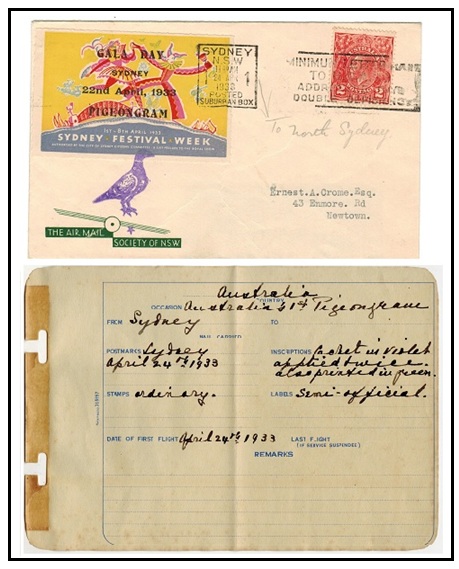 GALA DAY
SYDNEY
22nd April, 1933
PIGEONGRAM
1ST - 8TH APRIL 1933
SYDNEY · FESTIVAL · WEEK
SYDNEY
N.S.W
1933
POSTED
SUBURBAN BOX
1
MINIMUM
TO
ADDR
DOUBLE
2 2
To North Sydney
Ernest.A.Crome.Esq.
43 Enmore. Rd
Newtown.
THE AIR MAIL
SOCIETY OF NSW
Australia
COUNTRY
OCCASION Australia's 1st Pigeongram
FROM Sydney TO
MAIL CARRIED
POSTMARKS Sydney INSCRIPTIONS Cachet in violet
April 24th 1933 applied twice
also printed in green.
STAMPS ordinary. LABELS Semi-official.
DATE OF FIRST FLIGHT April 24th 1933 LAST FLIGHT
(IF SERVICE SUSPENDED)
REMARKS